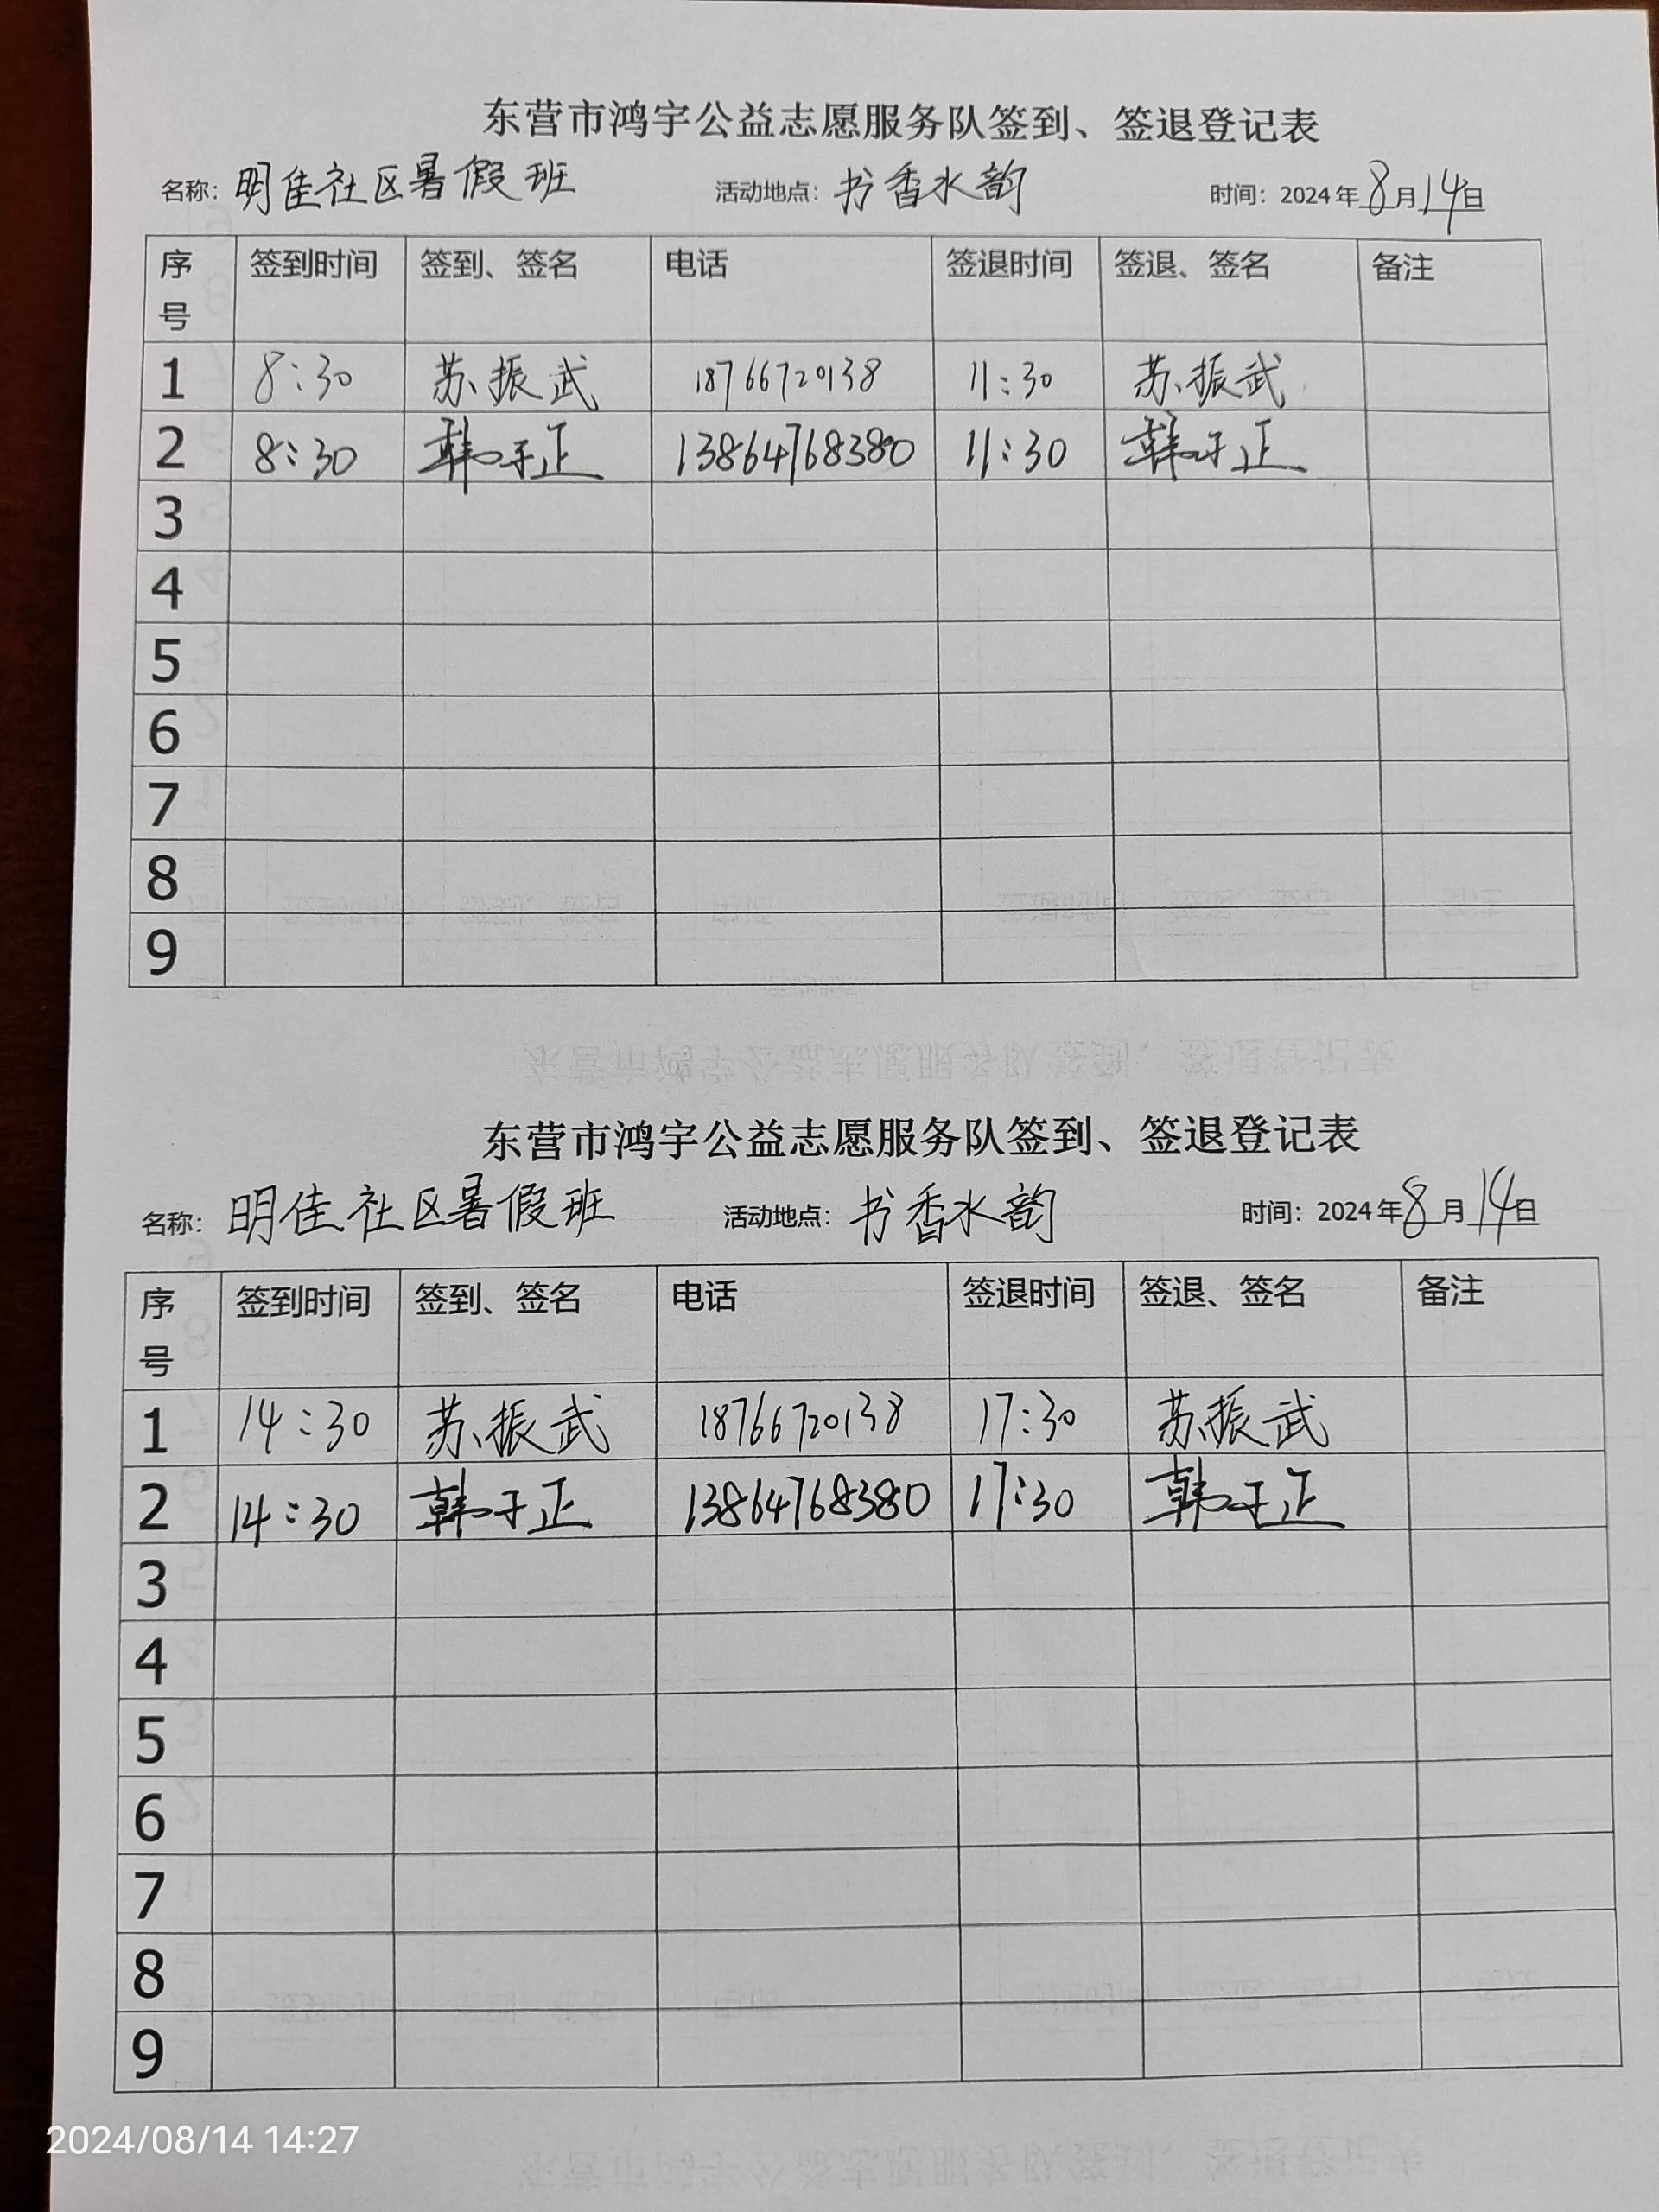 东营市鸿宇公益志愿服务队签到、签退登记表
名称：明佳社区暑假班 活动地点：书香水韵 时间：2024年8月14日
序号 签到时间 签到、签名 电话 签退时间 签退、签名 备注
1 8:30 苏振武 18766720138 11:30 苏振武
2 8:30 韩于正 13864768380 11:30 韩于正
3
4
5
6
7
8
9
东营市鸿宇公益志愿服务队签到、签退登记表
名称：明佳社区暑假班 活动地点：书香水韵 时间：2024年8月14日
序号 签到时间 签到、签名 电话 签退时间 签退、签名 备注
1 14:30 苏振武 18766720138 17:30 苏振武
2 14:30 韩于正 13864768380 17:30 韩于正
3
4
5
6
7
8
9
2024/08/14 14:27